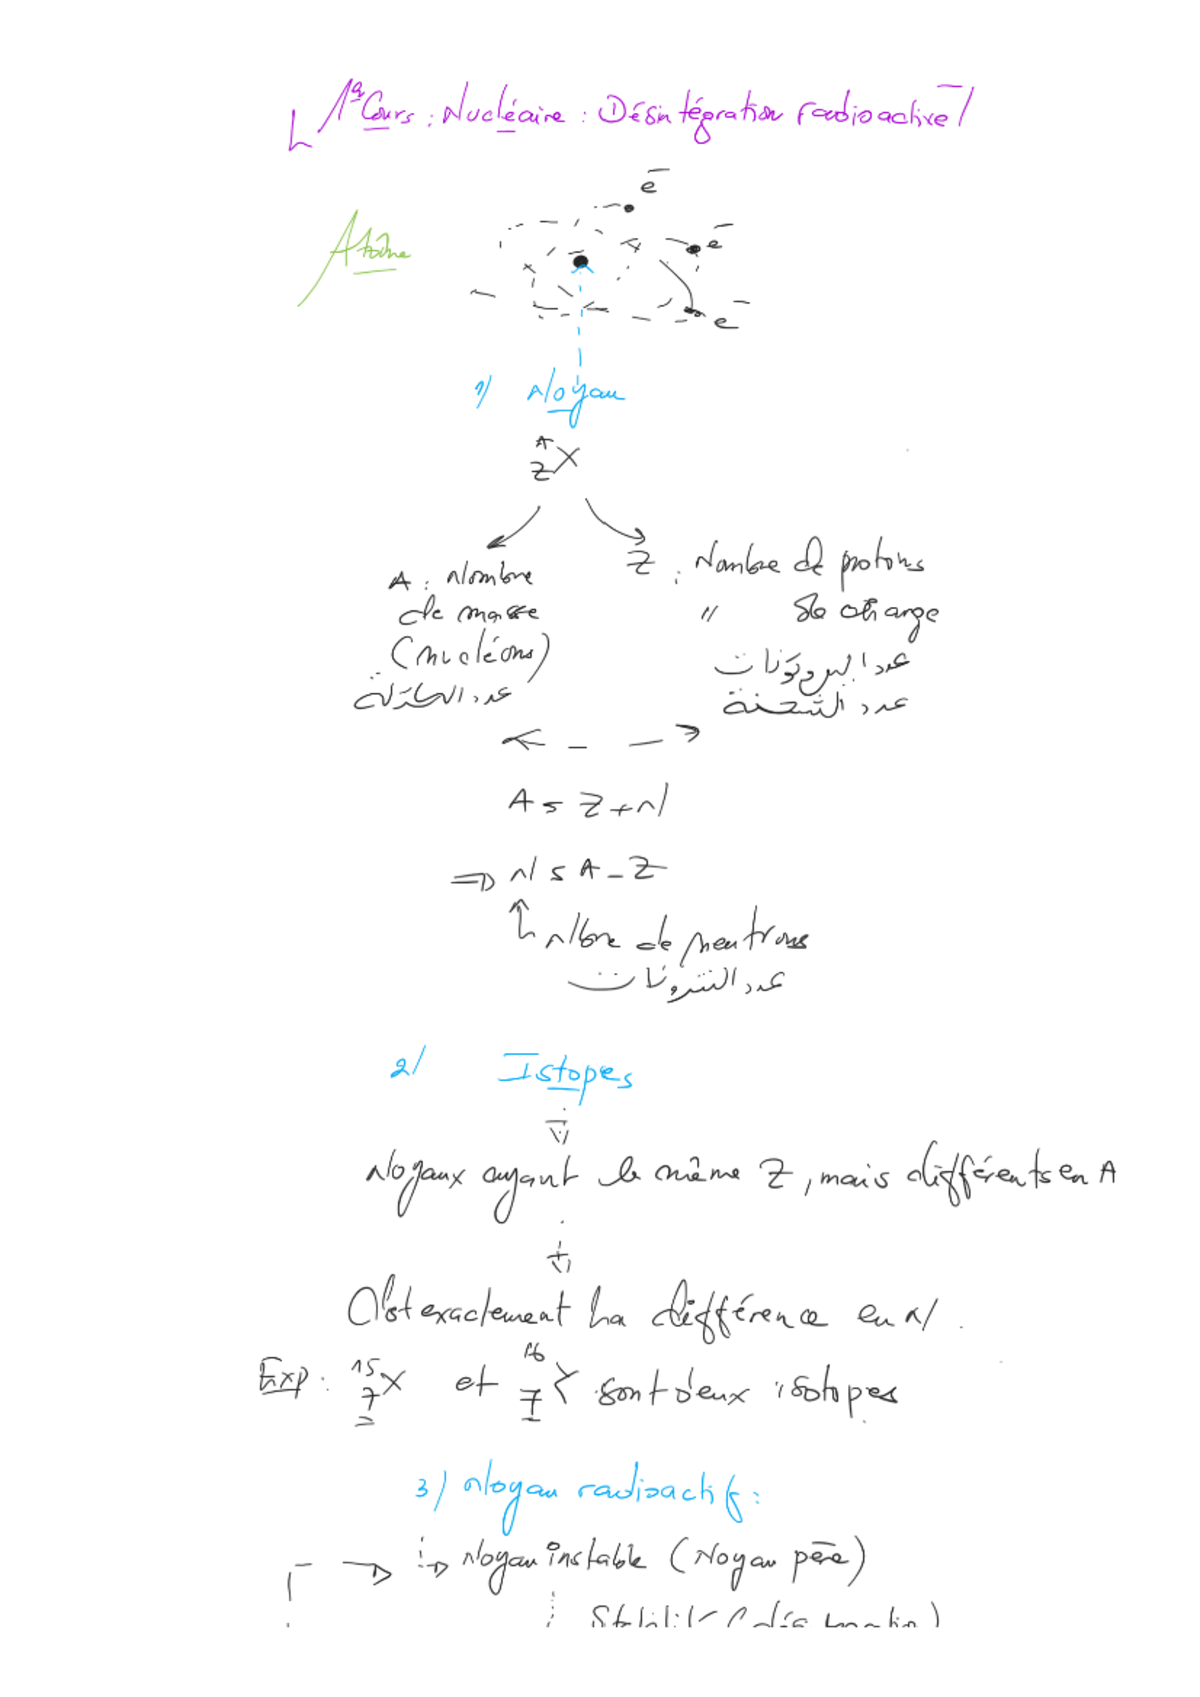 1er Cours : Nucléaire : Désintégration radioactive
e-
Atome
e-
e-
1) Noyau
A
Z X
A : Nombre
de masse
(nucléons)
عدد الكتلة
Z : Nombre de protons
" de charge
عدد البروتونات
عدد الشحنة
A = Z + N
⇒ N = A - Z
Nbre de neutrons
عدد النترونات
2/ Istopes
Noyaux ayant le même Z, mais différents en A
C'st exactement La différence en N.
Exp : 15 7 X et 16 7 Y sont deux isotopes
3) Noyau radioactif :
Noyau instable (Noyau père)